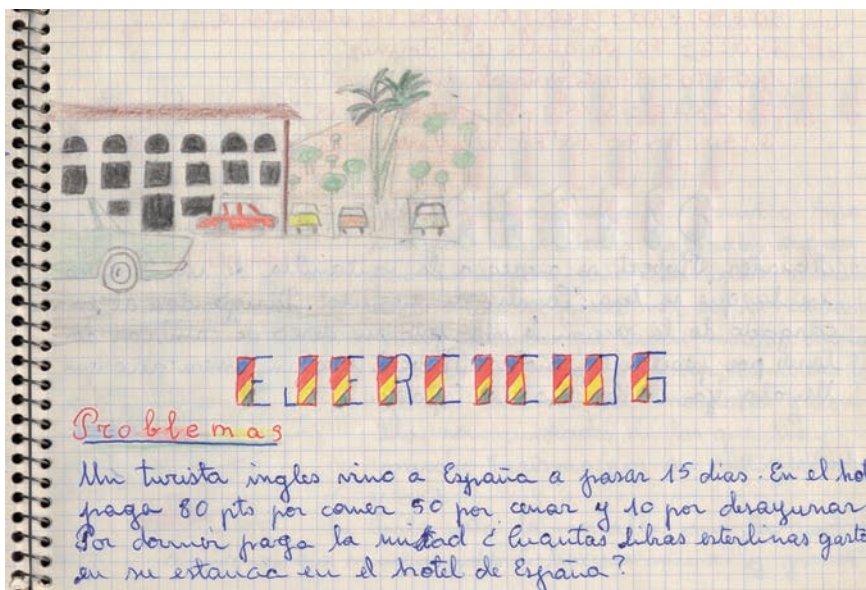 EJERCICIOS
Problemas
Un turista ingles vino a España a pasar 15 dias. En el hot
paga 80 pts por comer 50 por cenar y 10 por desayunar
Por dormir paga la mitad ¿ Cuantas libras esterlinas gasta
en su estancia en el hotel de España?